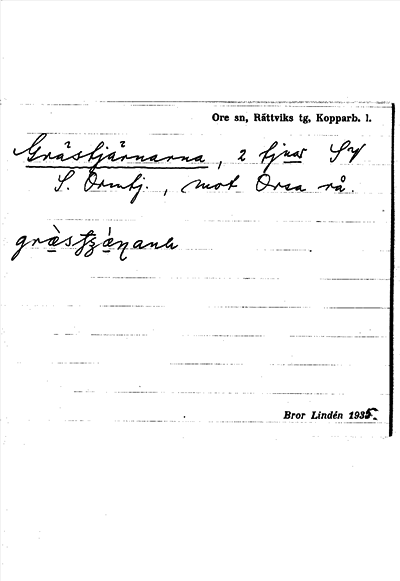 Ore sn, Rättviks tg, Kopparb. l.
Grästjärnarna, 2 tjnar SV
S. Ormtj., mot Orsa rå.
Bror Lindén 1935.